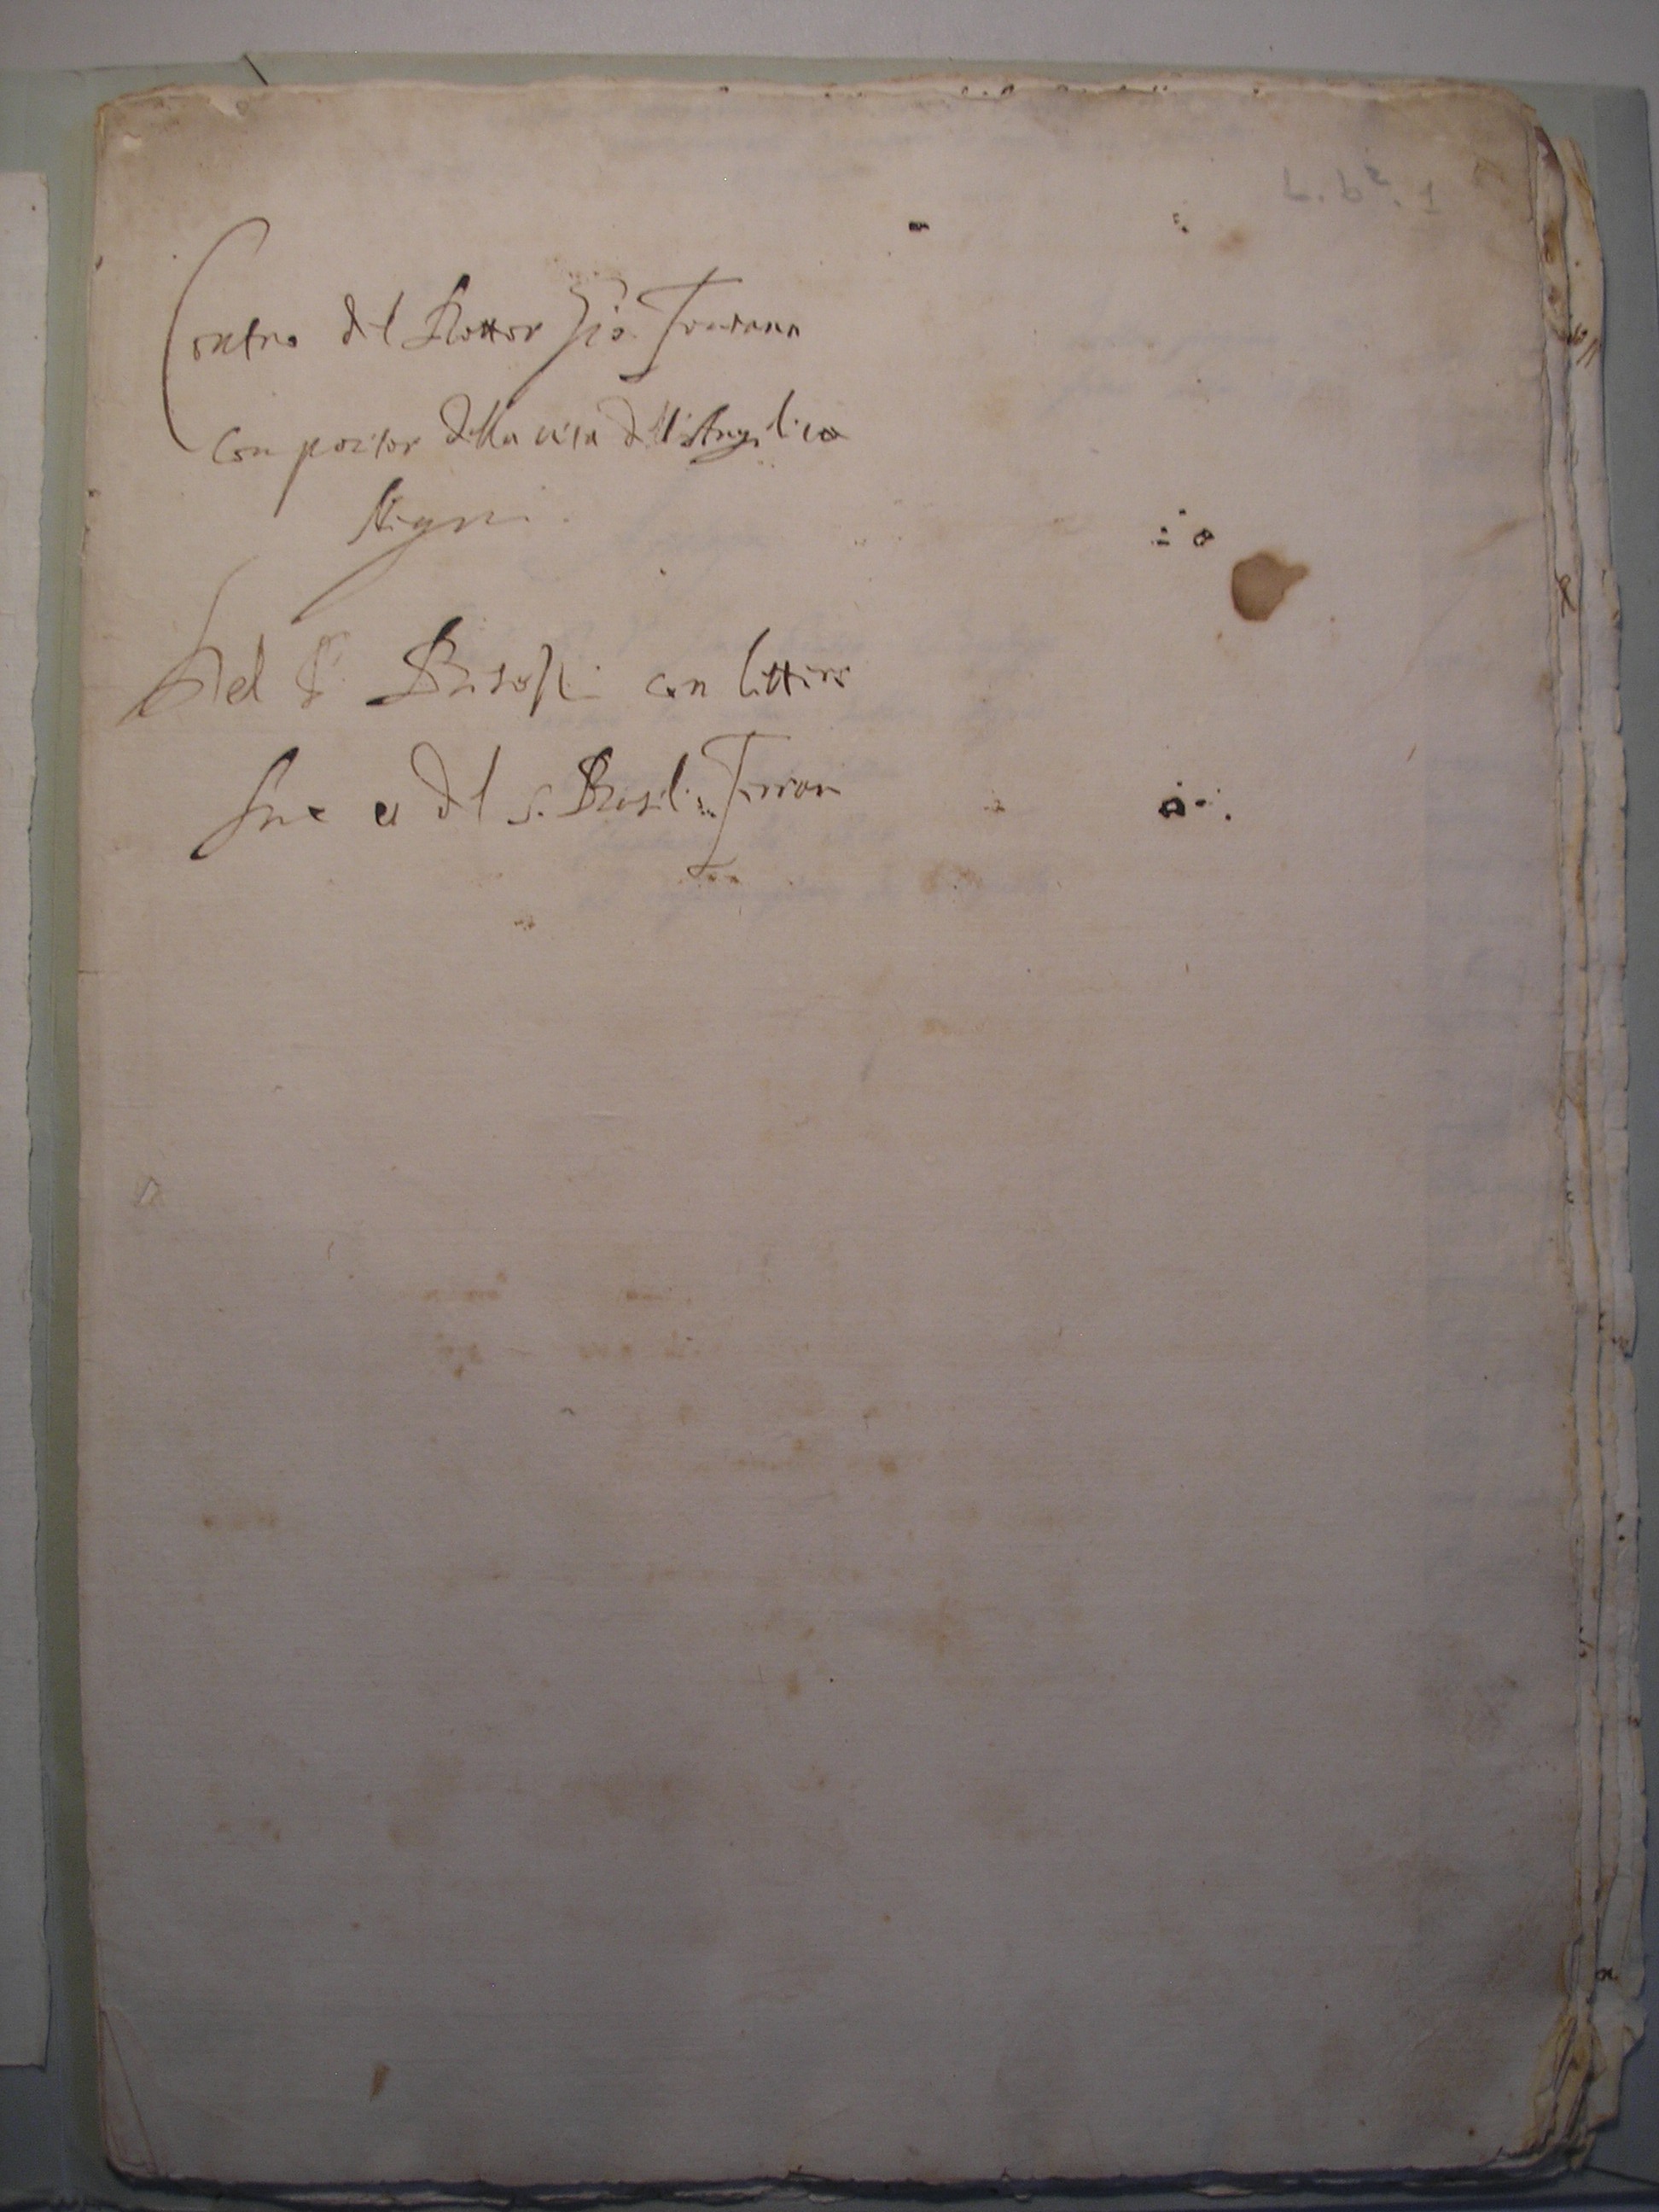 L. b. e. 1
Contra del Dottor Gio. Fontana
Compositor della vita dell'Angelica
Negri.
Del P. Besossi con lettere
sue et del s. Basilio Ferrari